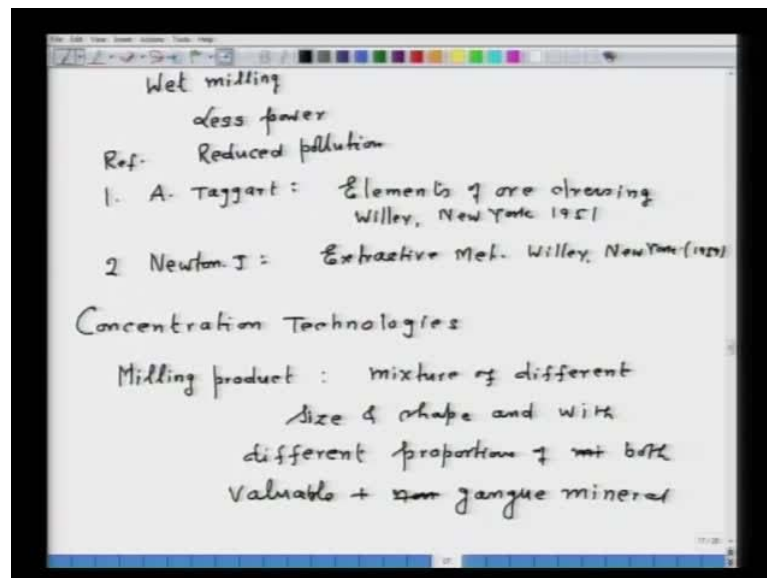 File Edit View Insert Actions Tools Help
Wet milling
Less power
Reduced pollution
Ref.
1. A. Taggart : Elements of ore dressing
Willey, New York 1951
2 Newton. J : Extractive Met. Willey, New York (1959)
Concentration Technologies
Milling product : mixture of different
size & shape and with
different proportion of both
valuable + gangue mineral